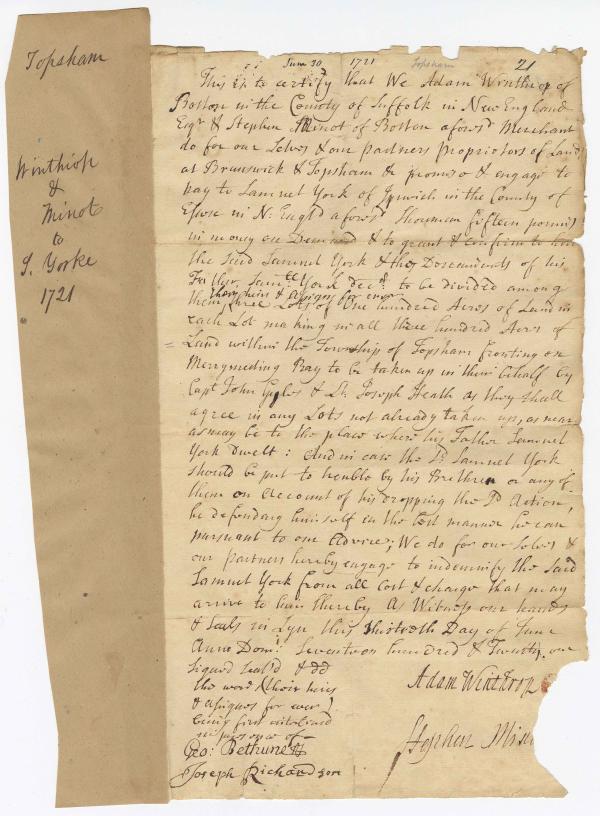 Topsham
Winthrop
&
Minot
to
S. Yorke
1721
June 30 1721 Topsham 21
This is to certify that We Adam Winthrop of
Boston in the County of Suffolk in New England
Esqr & Stephen Minot of Boston aforesd Merchant
do for our Selves & our partners Proprietors of Land
at Brunswick & Topsham &c promise & engage to
pay to Samuel York of Ipswich in the County of
Essex in N: Engld aforesd fifteen pounds
in money on Demand & to grant & confirm to him
the Said Samuel York & they Descendants of his
Father Samll York Decd. to be divided among
them their heirs & assigns for ever
three Lots of One hundred Acres of Land in
each Lot making in all three hundred Acres of
Land within the Township of Topsham fronting on
Merrymeeting Bay to be taken up in their behalf by
Capt John Gyles & Lt. Joseph Heath as they shall
agree in any Lots not already taken up, as near
as may be to the place where his Father Samuel
York Dwelt: And in case the Sd. Samuel York
should be put to trouble by his Brethren or any of
them on Account of his dropping the Sd Action,
he defending himself in the best manner he can
pursuant to our Advice; We do for our Selves &
our partners hereby engage to indemnify the Said
Samuel York from all Cost & charge that may
arrive to him thereby As Witness our hands
& Seals in Lyn this thirtieth Day of June
Anno Domi. Seventeen hundred & Twenty one
Signed Seal'd & dd
the word (their heirs
& assignes for ever)
being first interlined
in presence of —
Geo: Bethune
Joseph Richardson
Adam Winthrop
Stephen Mino